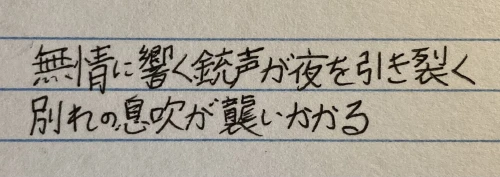 無情に響く銃声が夜を引き裂く
別れの息吹が襲いかかる